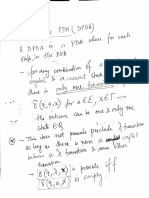 PDA (DPDA)
A DPDA is a PDA where for each
state in the PDA
- for any combination of a
& a current stack
there is only one transition
δ(q, a, X) for a ∈ Σ, X ∈ Γ
the outcome can be one & only one
state ∈ Q.
- This does not preclude λ transition
so long as there is never a conflict
between a λ transition & some other
transition.
δ(q, λ, X) is possible iff
δ(q, a, X) is empty.